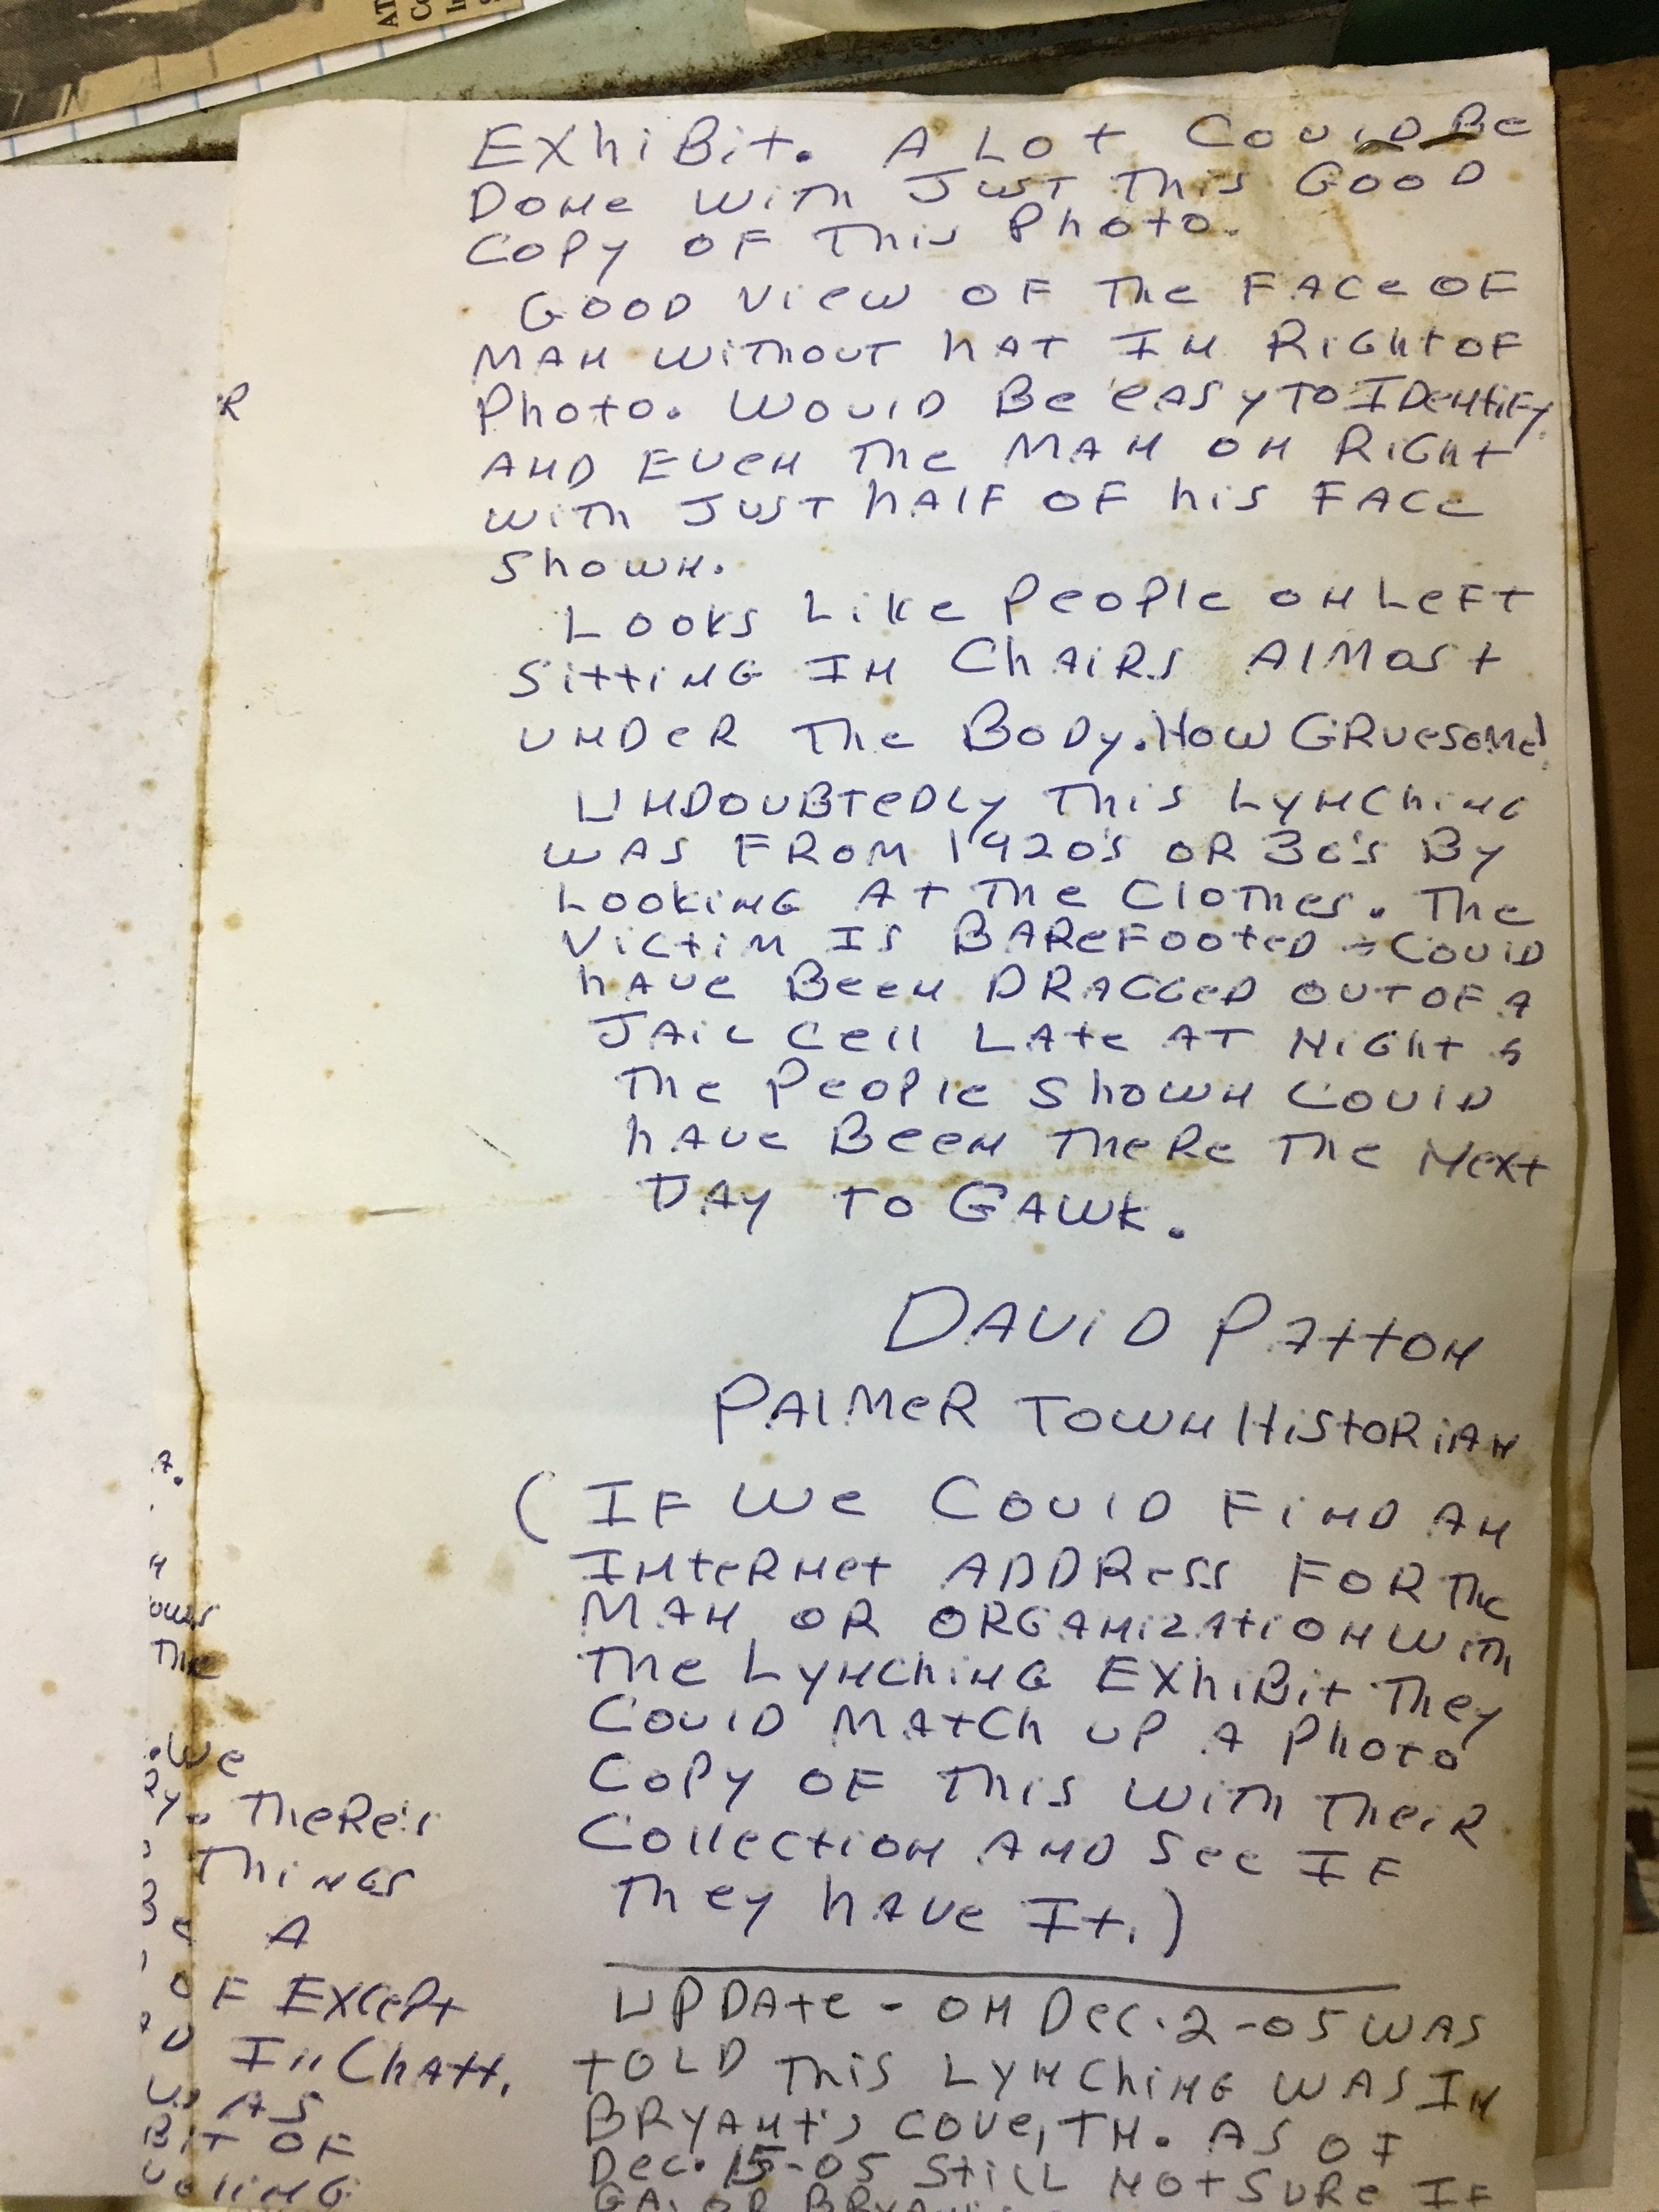 Exhibit. A Lot Could Be
Done with Just This Good
Copy of This Photo.
Good View of The Face of
Man without hat In Right of
Photo. Would Be easy to Identify
And Even The Man on Right
with Just half of his Face
Shown.
Looks Like People on Left
Sitting In Chairs Almost
Under The Body. How Gruesome!
Undoubtedly This Lynching
was From 1920's or 30's By
Looking At The Clothes. The
Victim Is Barefooted + Could
have Been Dragged out of A
Jail Cell Late At Night &
The People Shown Could
have Been There The Next
Day To Gawk.
David Patton
Palmer Town Historian
(If we Could Find An
Internet Address For The
Man or Organization with
The Lynching Exhibit They
Could Match up A Photo
Copy of This with Their
Collection And See If
They have It.)
Update - on Dec. 2-05 was
told This Lynching was In
Bryant's Cove, TN. As of
Dec. 15-05 Still Not Sure If
GA. or
R
A.
The
. We
There's
Things
A
OF Except
In Chatt.
AS
OF